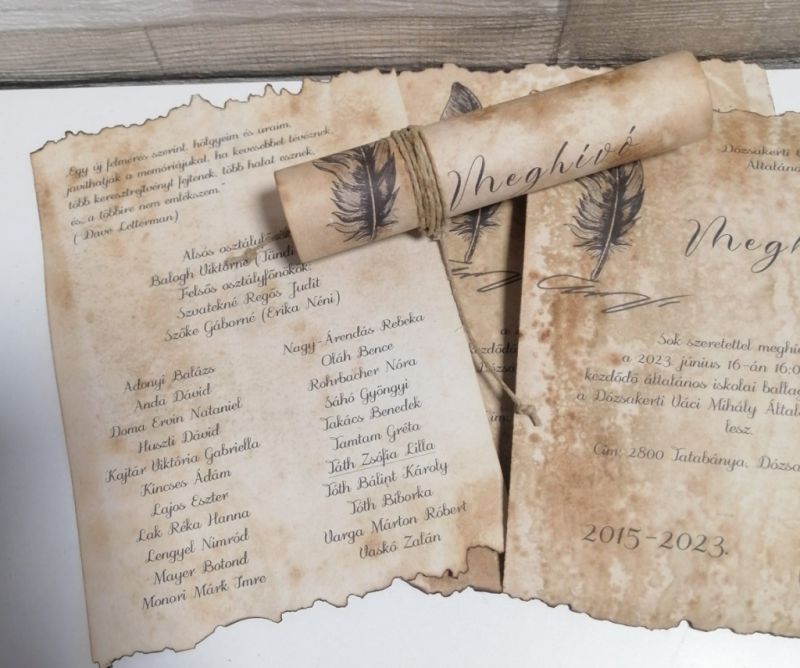 "Egy új felmérés szerint, hölgyeim és uraim,
javíthatják a memóriájukat, ha kevesebbet tévéznek,
több keresztrejtvényt fejtenek, több halat esznek,
és, a többire nem emlékszem."
( Dave Letterman)
Alsós
Balogh Viktorné (Tündi
Felsős osztályfőnökök:
Szvatekné Regős Judit
Szőke Gáborné (Erika Néni)
Adonyi Balázs
Anda Dávid
Doma Ervin Nataniel
Huszti Dávid
Kajtár Viktória Gabriella
Kincses Ádám
Lajos Eszter
Lak Réka Hanna
Lengyel Nimród
Mayer Botond
Monori Márk Imre
Nagy-Árendás Rebeka
Oláh Bence
Rohrbacher Nóra
Sáhó Gyöngyi
Takács Benedek
Tamtam Gréta
Táth Zsófia Lilla
Tóth Bálint Károly
Tóth Bíborka
Varga Márton Róbert
Vaskó Zalán
Meghívó
Dózsakerti
Általán
Megh
Sok szeretettel meghív
a 2023 június 16-án 16:0
kezdődő általános iskolai ballag
a Dózsakerti Váci Mihály Által
lesz.
Cím: 2800 Tatabánya, Dózsa
2015-2023.